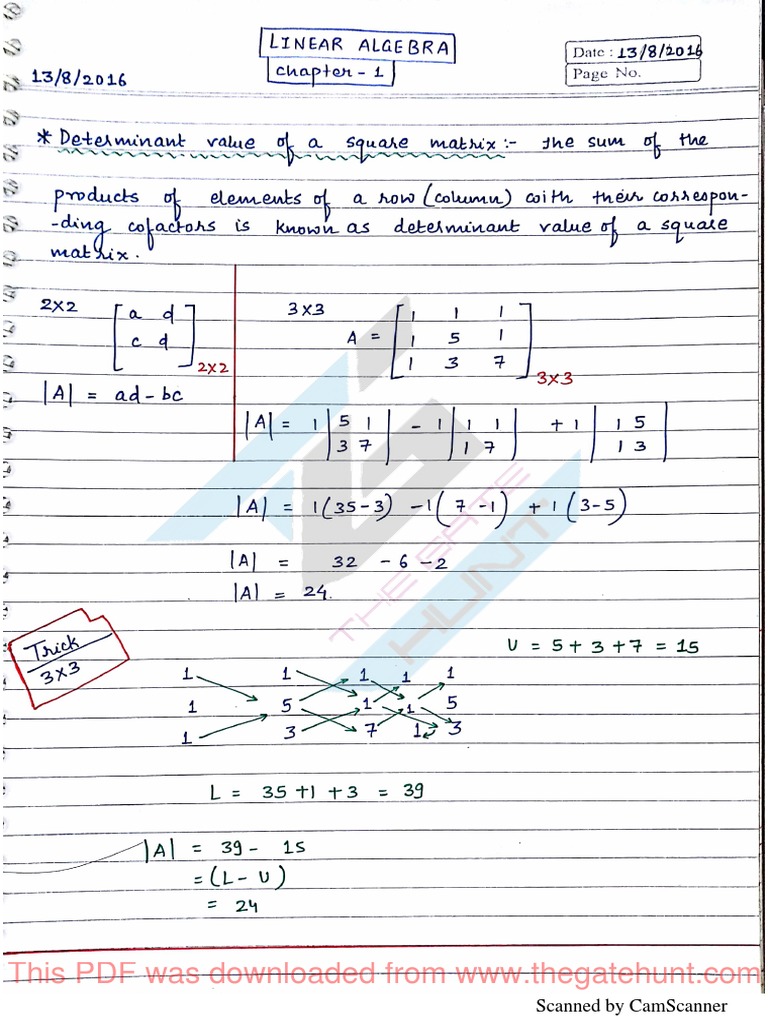 LINEAR ALGEBRA
Chapter - 1
Date : 13/8/2016
Page No.
13/8/2016
* Determinant value of a square matrix :- The sum of the
products of elements of a row (column) with their correspon-
-ding cofactors is known as determinant value of a square
matrix.
2×2
a d
c d
2×2
|A| = ad - bc
3×3
A =
1 1 1
1 5 1
1 3 7
3×3
|A| = 1 |5 1| - 1 |1 1| + 1 |1 5|
|3 7| |1 7| |1 3|
|A| = 1(35-3) -1(7-1) + 1(3-5)
|A| = 32 - 6 - 2
|A| = 24.
THE GATE
HUNT
Trick
3×3
U = 5 + 3 + 7 = 15
1 1 1 1 1
1 5 1 1 5
1 3 7 1 3
L = 35 + 1 + 3 = 39
|A| = 39 - 15
= (L - U)
= 24
This PDF was downloaded from www.thegatehunt.com
Scanned by CamScanner